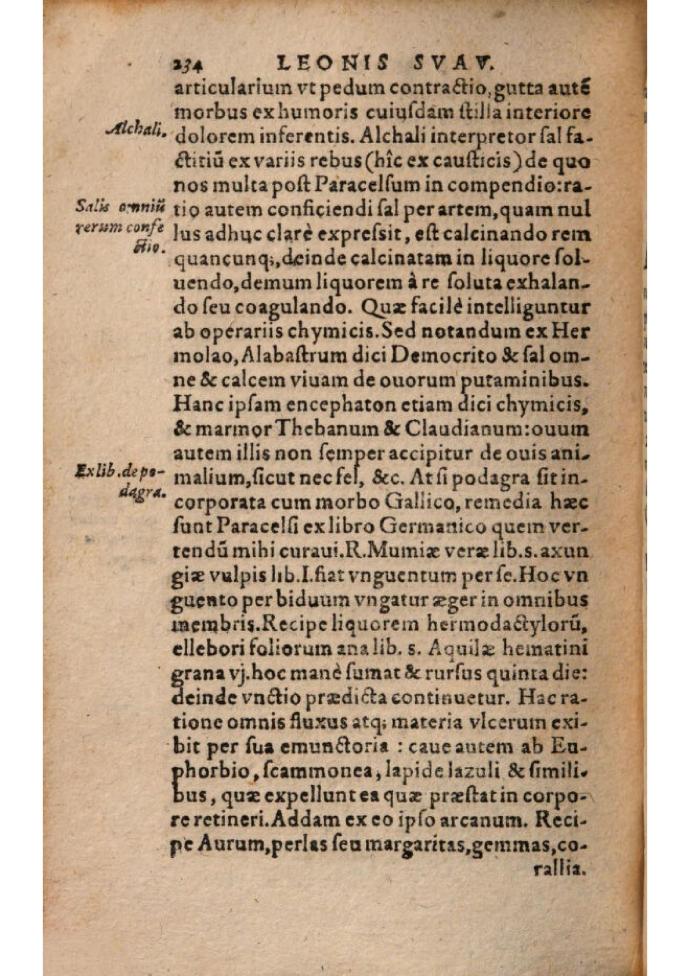 234 LEONIS SVAV.
articularium vt pedum contractio, gutta autē
morbus ex humoris cuiusdam ſtilla interiore
Alchali.
dolorem inferentis. Alchali interpretor ſal fa-
ctitiū ex variis rebus (hîc ex cauſticis) de quo
nos multa poſt Paracelſum in compendio: ra-
Salis omniū
tio autem conficiendi ſal per artem, quam nul
rerum confe
lus adhuc clarè expreſsit, eſt calcinando rem
ctio.
quancunq;, deinde calcinatam in liquore ſol-
uendo, demum liquorem à re ſoluta exhalan-
do ſeu coagulando. Quæ facilè intelliguntur
ab operariis chymicis. Sed notandum ex Her
molao, Alabaſtrum dici Democrito & ſal om-
ne & calcem viuam de ouorum putaminibus.
Hanc ipſam encephaton etiam dici chymicis,
& marmor Thebanum & Claudianum: ouum
autem illis non ſemper accipitur de ouis ani-
Ex lib. de po-
malium, ſicut nec fel, &c. At ſi podagra ſit in-
dagra.
corporata cum morbo Gallico, remedia hæc
ſunt Paracelſi ex libro Germanico quem ver-
tendū mihi curaui. R. Mumiæ veræ lib. s. axun
giæ vulpis lib. I. fiat vnguentum per ſe. Hoc vn
guento per biduum vngatur æger in omnibus
membris. Recipe liquorem hermodactylorū,
ellebori foliorum ana lib. s. Aquilæ hematini
grana vj. hoc manè ſumat & rurſus quinta die:
deinde vnctio prædicta continuetur. Hac ra-
tione omnis fluxus atq; materia vlcerum exi-
bit per ſua emunctoria : caue autem ab Eu-
phorbio, ſcammonea, lapide lazuli & ſimili-
bus, quæ expellunt ea quæ præſtat in corpo-
re retineri. Addam ex eo ipſo arcanum. Reci-
pe Aurum, perlas ſeu margaritas, gemmas, co-
rallia.